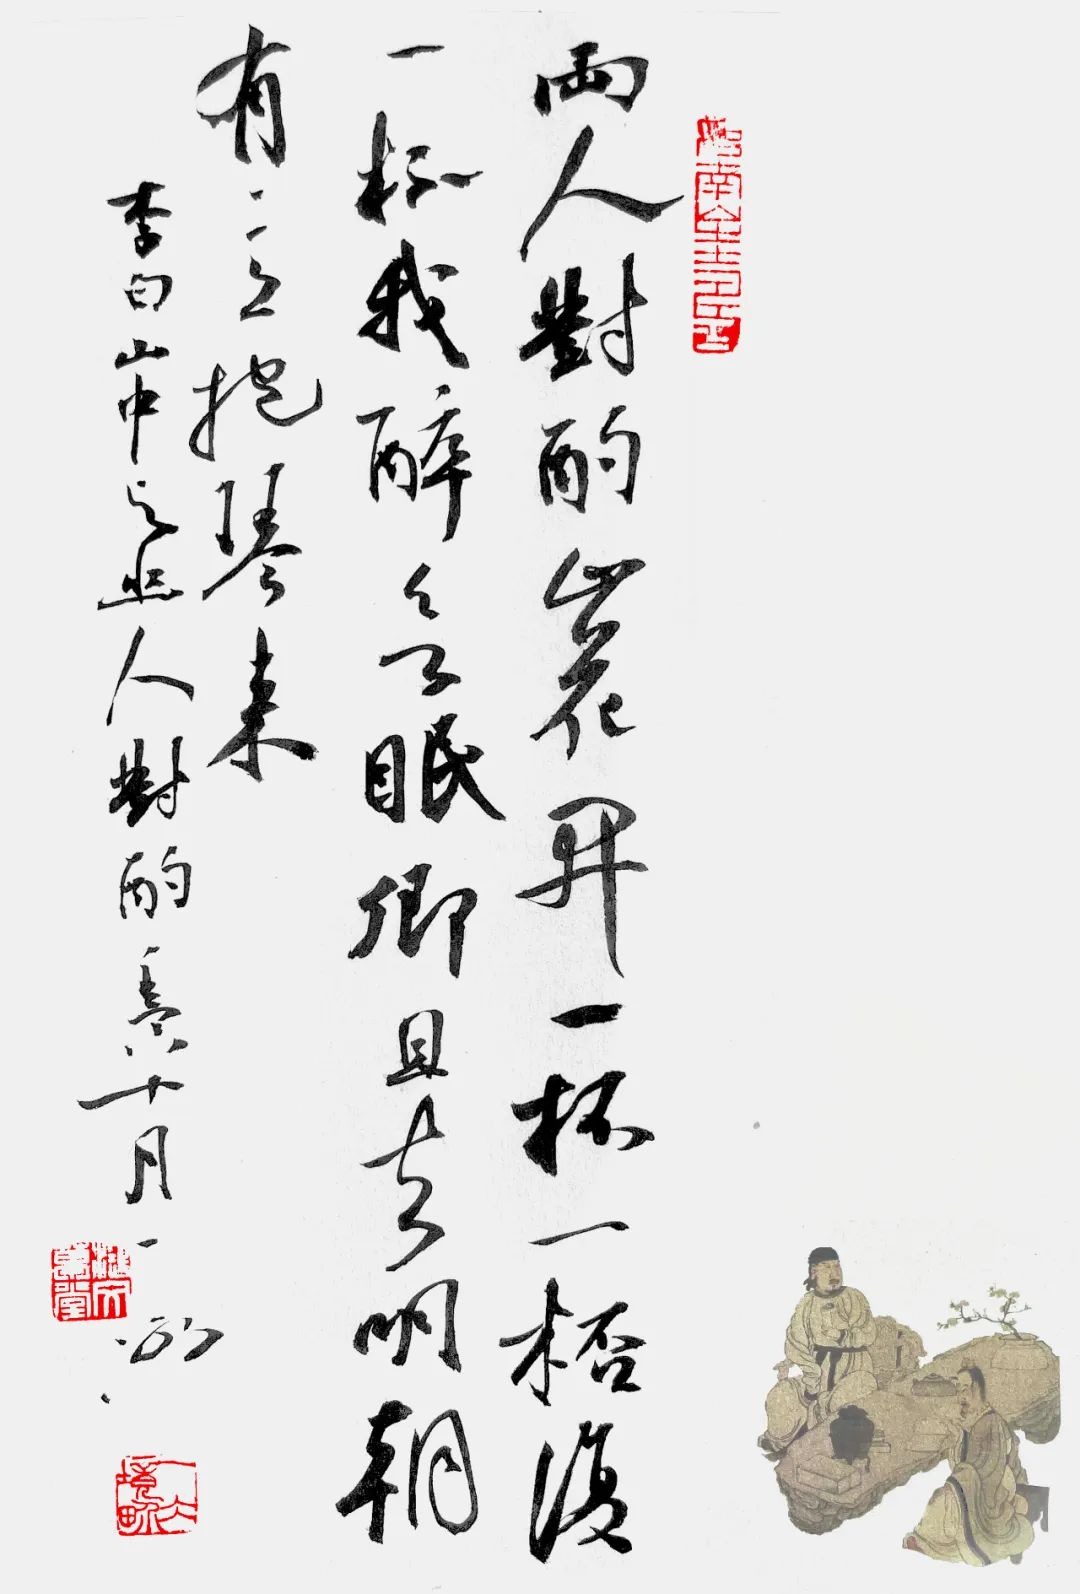 兩人對酌山花開一杯一桮復
一杯我醉欲眠卿且去明朝
有意抱琴來
李白山中与幽人對酌 十月一